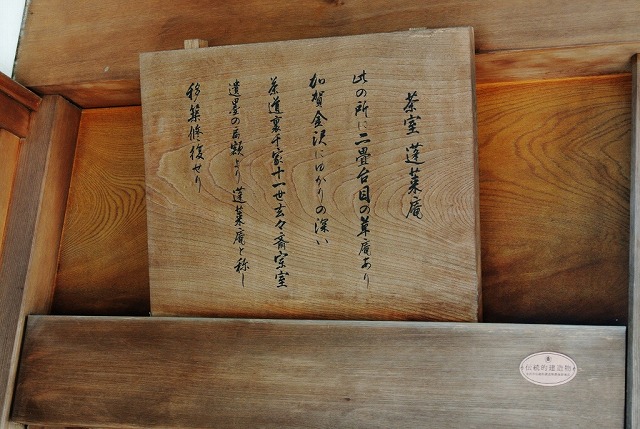 茶室 蓬莱庵
此の所に二畳台目の草庵あり
加賀金沢にゆかりの深い
茶道裏千家十一世玄々斎宗室
遺墨の扁額より蓬莱庵と称し
移築修復せり
伝統的建造物